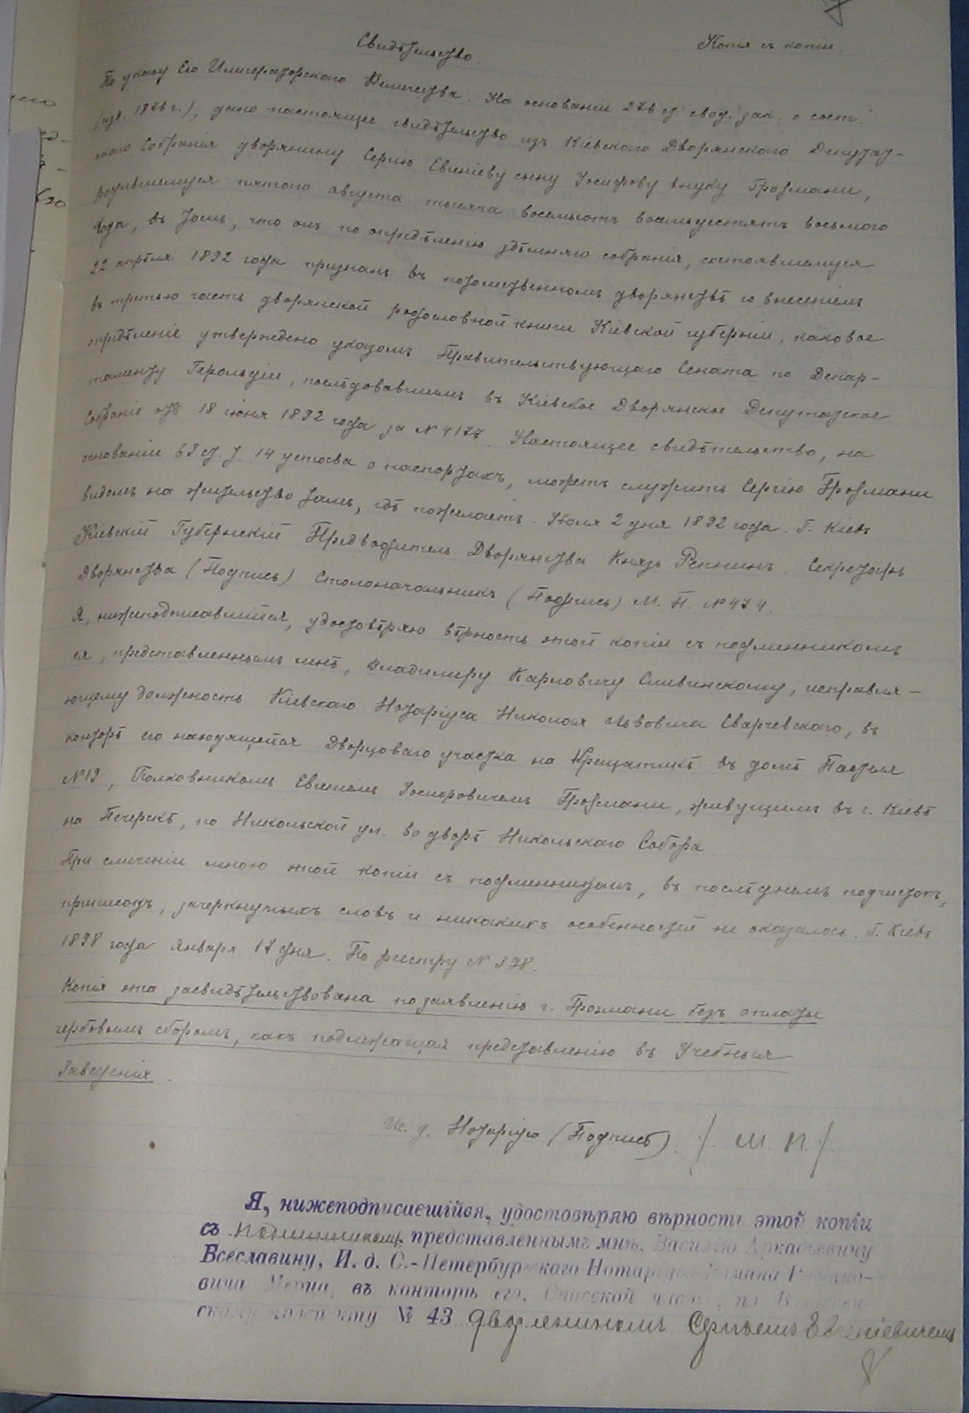 Копія съ копіи.
Свидѣтельство.
По указу Его Императорскаго Величества. На основаніи 276 ст. свод. зак. о сост.
(изд. 1876 г.), дано настоящее свидѣтельство изъ Кіевскаго Дворянскаго Депутат-
скаго Собранія дворянину Сергію Евгеніеву сыну Іосифову внуку Гросмани,
родившемуся пятого августа тысяча восемьсотъ восемьдесятъ восьмого
года, въ томъ, что онъ по опредѣленію здѣшняго собранія, состоявшемуся
22 апрѣля 1892 года признанъ въ потомственномъ дворянствѣ со внесеніемъ
въ третью часть дворянской родословной книги Кіевской губерніи, каковое
опредѣленіе утверждено указомъ Правительствующаго Сената по Депар-
таменту Герольдіи, послѣдовавшимъ въ Кіевское Дворянское Депутатское
Собраніе отъ 18 іюня 1892 года за № 4177. Настоящее свидѣтельство, на
основаніи 69 ст. 14 устава о паспортахъ, можетъ служить Сергію Гросмани
видомъ на жительство тамъ, гдѣ пожелаетъ. Іюля 2 дня 1892 года. Г. Кіевъ
Кіевскій Губернскій Предводитель Дворянства Князь Репнинъ. Секретарь
Дворянства (Подпись) Столоначальникъ (Подпись) М. П. № 474.
Я, нижеподписавшійся, удостовѣряю вѣрность этой копіи съ подлинникомъ
ея, представленнымъ мнѣ, Владимиру Карловичу Сливинскому, исправля-
ющему должность Кіевскаго Нотаріуса Николая Львовича Сварчевскаго, въ
конторѣ его находящейся Дворцоваго участка на Крещатикѣ въ домѣ
№ 19, Полковникомъ Евгеніемъ Іосифовичемъ Гросмани, живущимъ въ г. Кіевѣ
на Печерскѣ, по Никольской ул. во дворѣ Никольскаго Собора
При сличеніи мною этой копіи съ подлинникомъ, въ послѣднемъ подчистокъ,
приписокъ, зачеркнутыхъ словъ и никакихъ особенностей не оказалось. Г. Кіевъ
1898 года Января 17 дня. По реестру № 398.
Копія эта засвидѣтельствована по заявленію г. Гросмани безъ оплаты
гербовымъ сборомъ, какъ подлежащая представленію въ Учебныя
Заведенія.
И. д. Нотаріуса (Подпись). /. М. П./.
Я, нижеподписавшійся, удостовѣряю вѣрность этой копіи
съ подлинникомъ, представленнымъ мнѣ, Василію Аркадьевичу
Всеславину, И. д. С.-Петербургскаго Нотаріуса Романа
вича въ конторѣ его, Спасской части, по
скому проспекту № 43 дворяниномъ Сергѣемъ Евгеніевичемъ